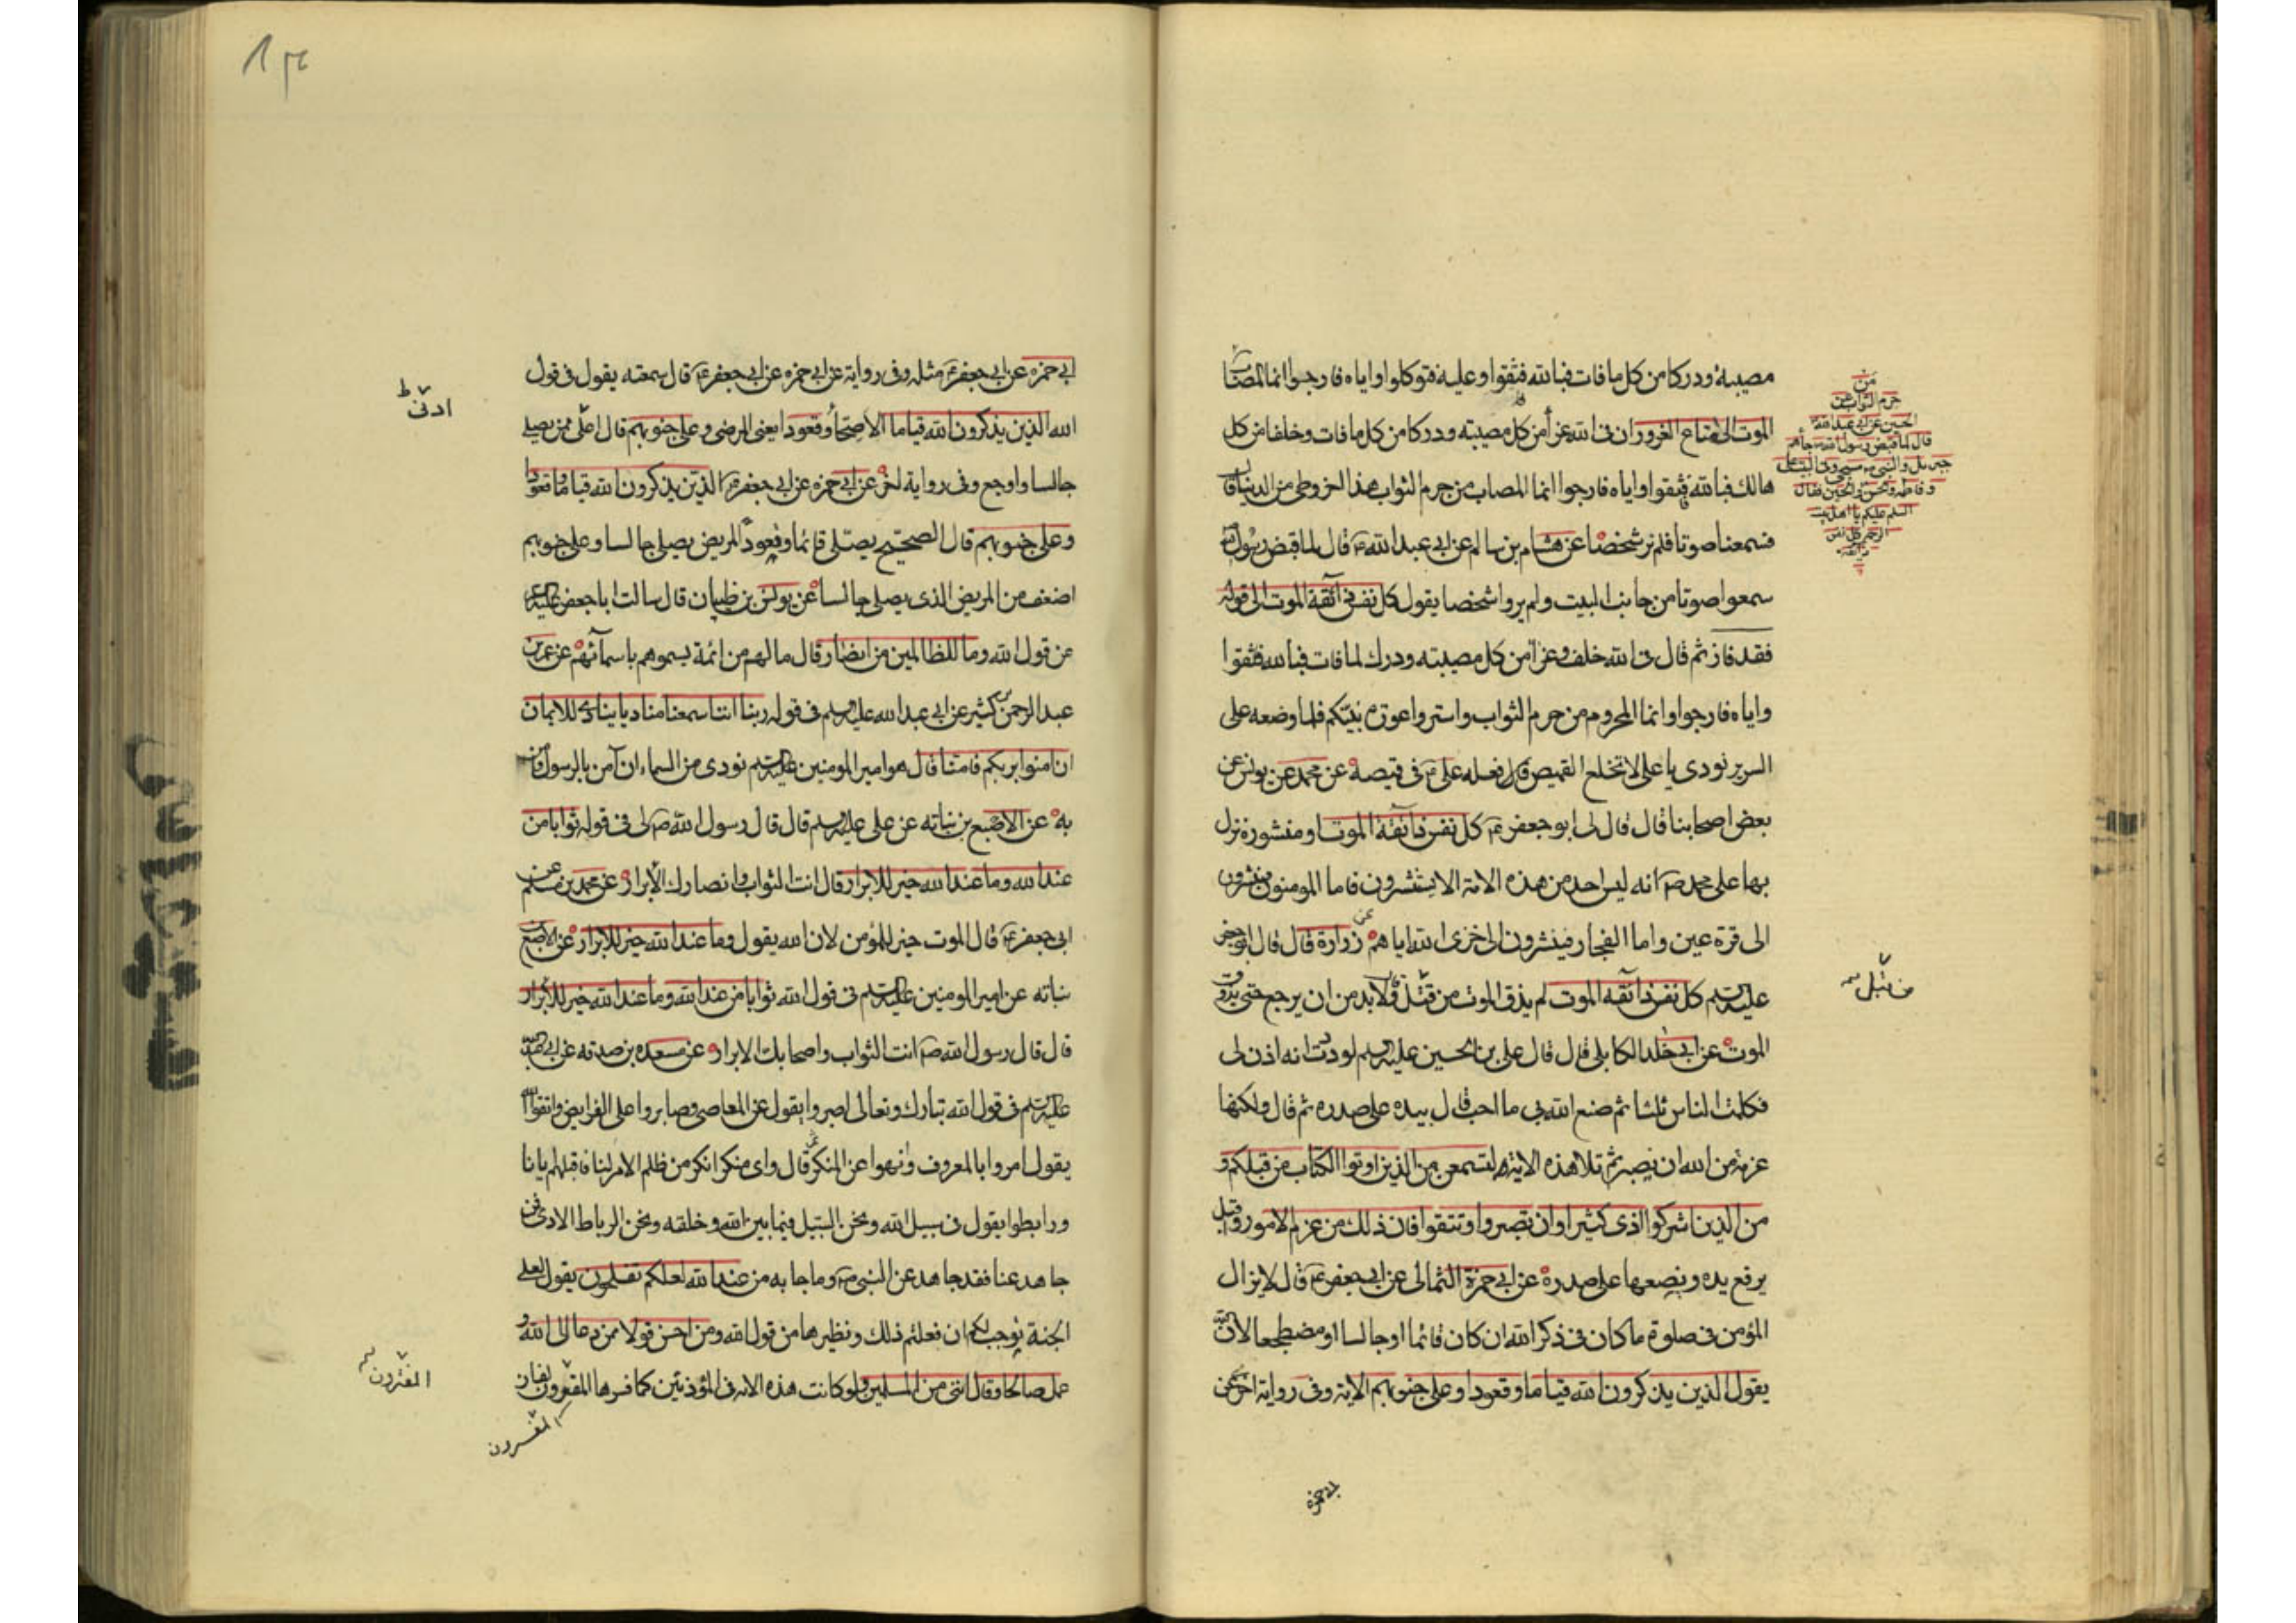 مصيبة ودركا من كل ما فات فبالله فثقوا وعليه فتوكلوا واياه فارجوا انما المصاب
الموت الى متاع الغرور ان فى الله عزاء من كل مصيبة ودركا من كل ما فات وخلفا من كل
هالك فبالله فثقوا واياه فارجوا انما المصاب من حرم الثواب هذا اخر وطى من الدنيا قال
فسمعنا صوتا فلم نر شخصا عن هشام بن سالم عن ابى عبد الله ع قال لما قبض رسول الله
سمعوا صوتا من جانب البيت ولم يروا شخصا يقول كل نفس ذائقة الموت الى قوله
فقد فاز ثم قال فى الله خلف وعزاء من كل مصيبته ودرك لما فات فبالله فثقوا
واياه فارجوا وانما المحروم من حرم الثواب واستروا عورة نبيكم فلما وضعه على
السرير نودى يا على لا تخلع القميص قال فغسله على ع فى قميصه عن محمد عن يونس عن
بعض اصحابنا قال قال لى ابو جعفر ع كل نفس ذائقة الموت او منشورة نزل
بها على محمد ص انه ليس احد من هذه الامة الا يستنشرون فاما المومنون فينشرون
الى قرة عين واما الفجار فينشرون الى خزى الله اياهم عن زرارة قال قال ابو جعفر
عليه السلم كل نفس ذائقة الموت لم يذق الموت من قتل قال لا بد من ان يرجع حتى يذوق
الموت عن ابى خلد الكابلى قال قال على بن الحسين عليه السلم لوددت انه اذن لى
فكلمت الناس ثلثا ثم صنع الله بى ما احب قال بيده على صدره ثم قال ولكنها
عزمة من الله ان نصبر ثم تلا هذه الاية ولتسمعن من الذين اوتوا الكتاب من قبلكم و
من الذين اشركوا اذى كثيرا وان تصبروا وتتقوا فان ذلك من عزم الامور واقبل
يرفع يده ويضعها على صدره عن ابى حمزة الثمالى عن ابى جعفر ع قال لا يزال
المؤمن فى صلوة ما كان فى ذكر الله ان كان قائما او جالسا او مضطجعا لان الله
يقول الذين يذكرون الله قياما وقعودا وعلى جنوبهم الاية وفى رواية اخرى عن
ابى حمزه
من
حرم الثواب عن
الحسين عن ابى عبد الله
قال لما قبض رسول الله ص جاءهم
جبرئيل والنبى ص مسجى وفى البيت على
وفاطمه والحسن والحسين فقال
السلم عليكم يا اهل بيت
الرحمة كل نفس
ذائقة
من قتل
ابى حمزه عن ابى جعفر ع مثله وفى رواية عن ابى حمزه عن ابى جعفر ع قال سمعته يقول فى قول
الله الذين يذكرون الله قياما الاصحاء وقعودا يعنى المرضى وعلى جنوبهم قال اعل ممن يصلى
جالسا واوجع وفى رواية اخرى عن ابى حمزه عن ابى جعفر ع الذين يذكرون الله قياما وقعودا
وعلى جنوبهم قال الصحيح يصلى قائما وقعودا المريض يصلى جالسا وعلى جنوبهم
اضعف من المريض الذى يصلى جالسا عن يونس بن ظبيان قال سالت ابا جعفر عليه السلم
عن قول الله وما للظالمين من انصار قال ما لهم من ائمة يسموهم باسمائهم عن عمر بن
عبد الرحمن بن كثير عن ابى عبد الله عليه السلم فى قوله ربنا اننا سمعنا مناديا ينادى للايمان
ان امنوا بربكم فامنا قال هو امير المومنين عليه السلم نودى من السماء ان آمن بالرسول فآمن
به عن الاصبغ بن نباته عن على عليه السلم قال قال رسول الله ص لى فى قوله ثوابا من
عند الله وما عند الله خير للابرار قال انت الثواب وانصارك الابرار عن محمد بن مسلم عن
ابى جعفر ع قال الموت خير للمؤمن لان الله يقول وما عند الله خير للابرار عن الاصبغ بن
نباته عن امير المومنين عليه السلم فى قول الله ثوابا من عند الله وما عند الله خير للابرار
قال قال رسول الله ص انت الثواب واصحابك الابرار عن مسعده بن صدقه عن ابى عبد الله
عليه السلم فى قول الله تبارك وتعالى اصبروا يقول عن المعاصى وصابروا على الفرايض واتقوا الله
يقول امروا بالمعروف وانهوا عن المنكر ثم قال واى منكر انكر من ظلم الامة لنا وقتلهم ايانا
ورابطوا يقول فى سبيل الله ونحن السبيل فيما بين الله وخلقه ونحن الرباط الادنى فمن
جاهد عنا فقد جاهد عن النبى ص وما جا به من عند الله لعلكم تفلحون يقول لعل
الجنة توجب لكم ان فعلتم ذلك ونظيرها من قول الله ومن احسن قولا ممن دعا الى الله و
عمل صالحا وقال اننى من المسلمين ولو كانت هذه الاية فى المؤذنين كما فسرها المفسرون لفاز
ادنى ط
المفسرون
المفسرون